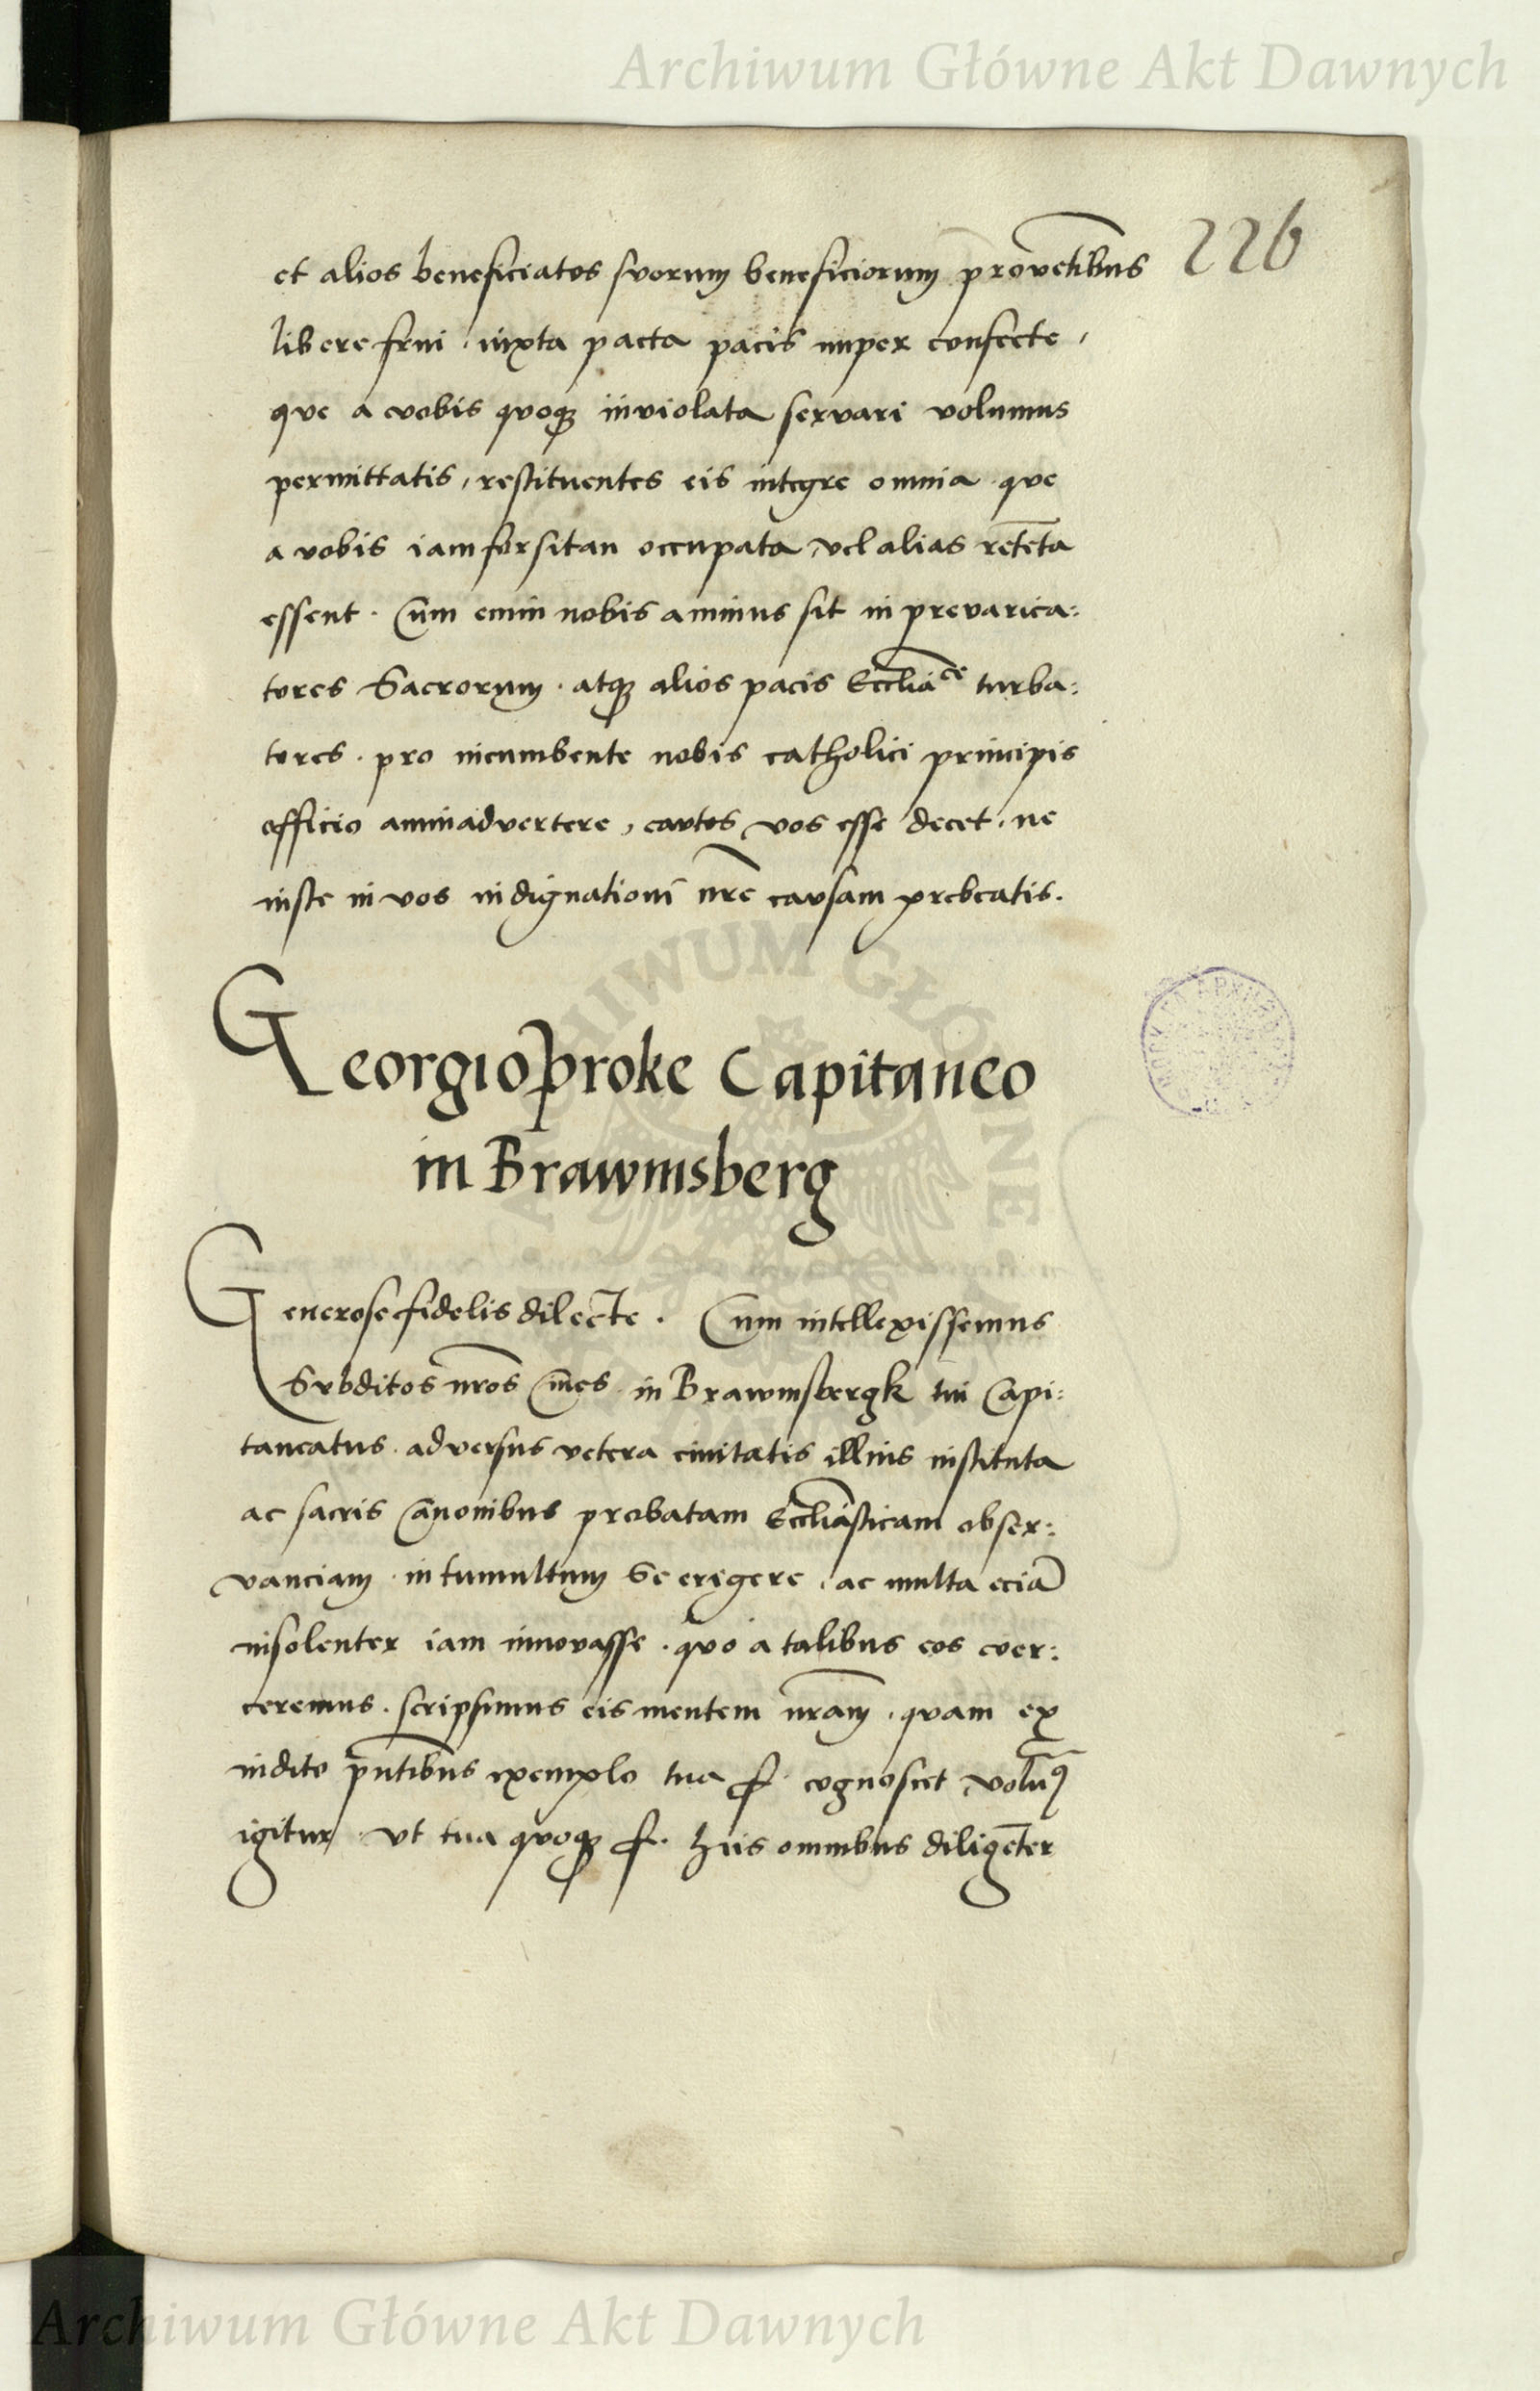 Archiwum Główne Akt Dawnych
226
et alios beneficiatos suorum beneficiorum prouētibus
libere frui · iuxta pacta pacis nuper confecte,
que a vobis quoqꝫ inviolata servari volumus
permittatis, restituentes eis integre omnia que
a vobis iam forsitan occupata vel alias retēta
essent · Cum enim nobis animus sit in prevarica:
tores Sacrorum · atqꝫ alios pacis Eccliāce turba:
tores · pro incumbente nobis catholici principis
officio animadvertere, cautos vos esse decet, ne
iuste in vos indignationi nr̄e causam prebeatis.
Georgio proke Capitaneo
in Brawmsberg
Generose fidelis dilecte · Cum intellexissemus
Subditos nr̄os Cīues in Brawmsbergk tui Capi:
taneatus · adversus vetera civitatis illius instituta
ac sacris Canonibus probatam Eccliāsticam obser:
vanciam · in tumultum Se erigere · ac multa eciā
insolenter iam innovasse · quo a talibus eos coer:
ceremus · scripsimus eis mentem nr̄am · quam ex
indito pn̄tibus exemplo tua f. cognoscet volum̄9
igitur · Vt tua quoqꝫ f. hiis omnibus diligēter
Archiwum Główne Akt Dawnych